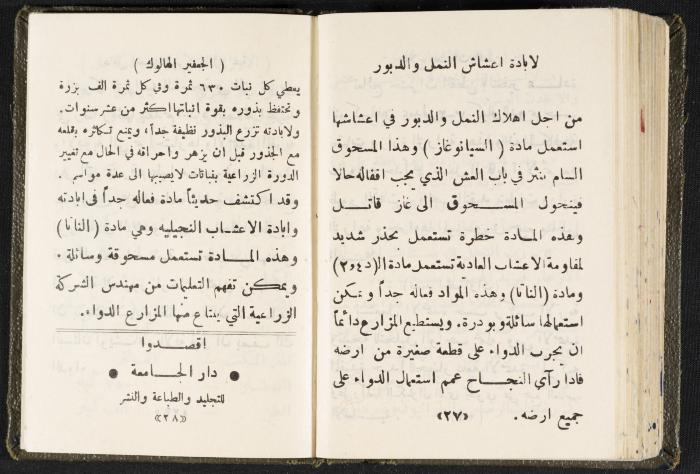 لابادة اعشاش النمل والدبور
من اجل اهلاك النمل والدبور في اعشاشها
استعمل مادة ( السيانوغاز ) وهذا المسحوق
السام ننثر في باب العش الذي يجب اقفاله حالا
فيتحول المسحوق الى غاز قاتل
وهذه المادة خطرة تستعمل بحذر شديد
لمقاومة الاعشاب العادية تستعمل مادة ال(٢٤٥د)
ومادة (التاتا) وهذه المواد فعالة جداً ويمكن
استعمالها سائلة وبودرة. ويستطيع المزارع دائماً
ان يجرب الدواء على قطعة صغيرة من ارضه
فاذا رآى النجاح عمم استعمال الدواء على
جميع ارضه.
«٢٧»
( الجعفير الهالوك )
يعطي كل نبات ٦٣٠ ثمرة وفي كل ثمرة الف بزرة
وتحتفظ بذوره بقوة انباتها اكثر من عشر سنوات.
ولابادته تزرع البذور نظيفة جداً، ويمنع تكاثره بقلعه
مع الجذور قبل ان يزهر واحراقه في الحال مع تغيير
الدورة الزراعية بنباتات لا يصيبها الى عدة مواسم.
وقد اكتشف حديثاً مادة فعاله جداً في ابادته
وابادة الاعشاب النجيليه وهي مادة ( التاتا )
وهذه المادة تستعمل مسحوقة وسائلة.
ويمكن تفهم التعليمات من مهندس الشركة
الزراعية التي يبتاع منها المزارع الدواء.
اقصدوا
● دار الجامعة ●
للتجليد والطباعة والنشر
«٢٨»